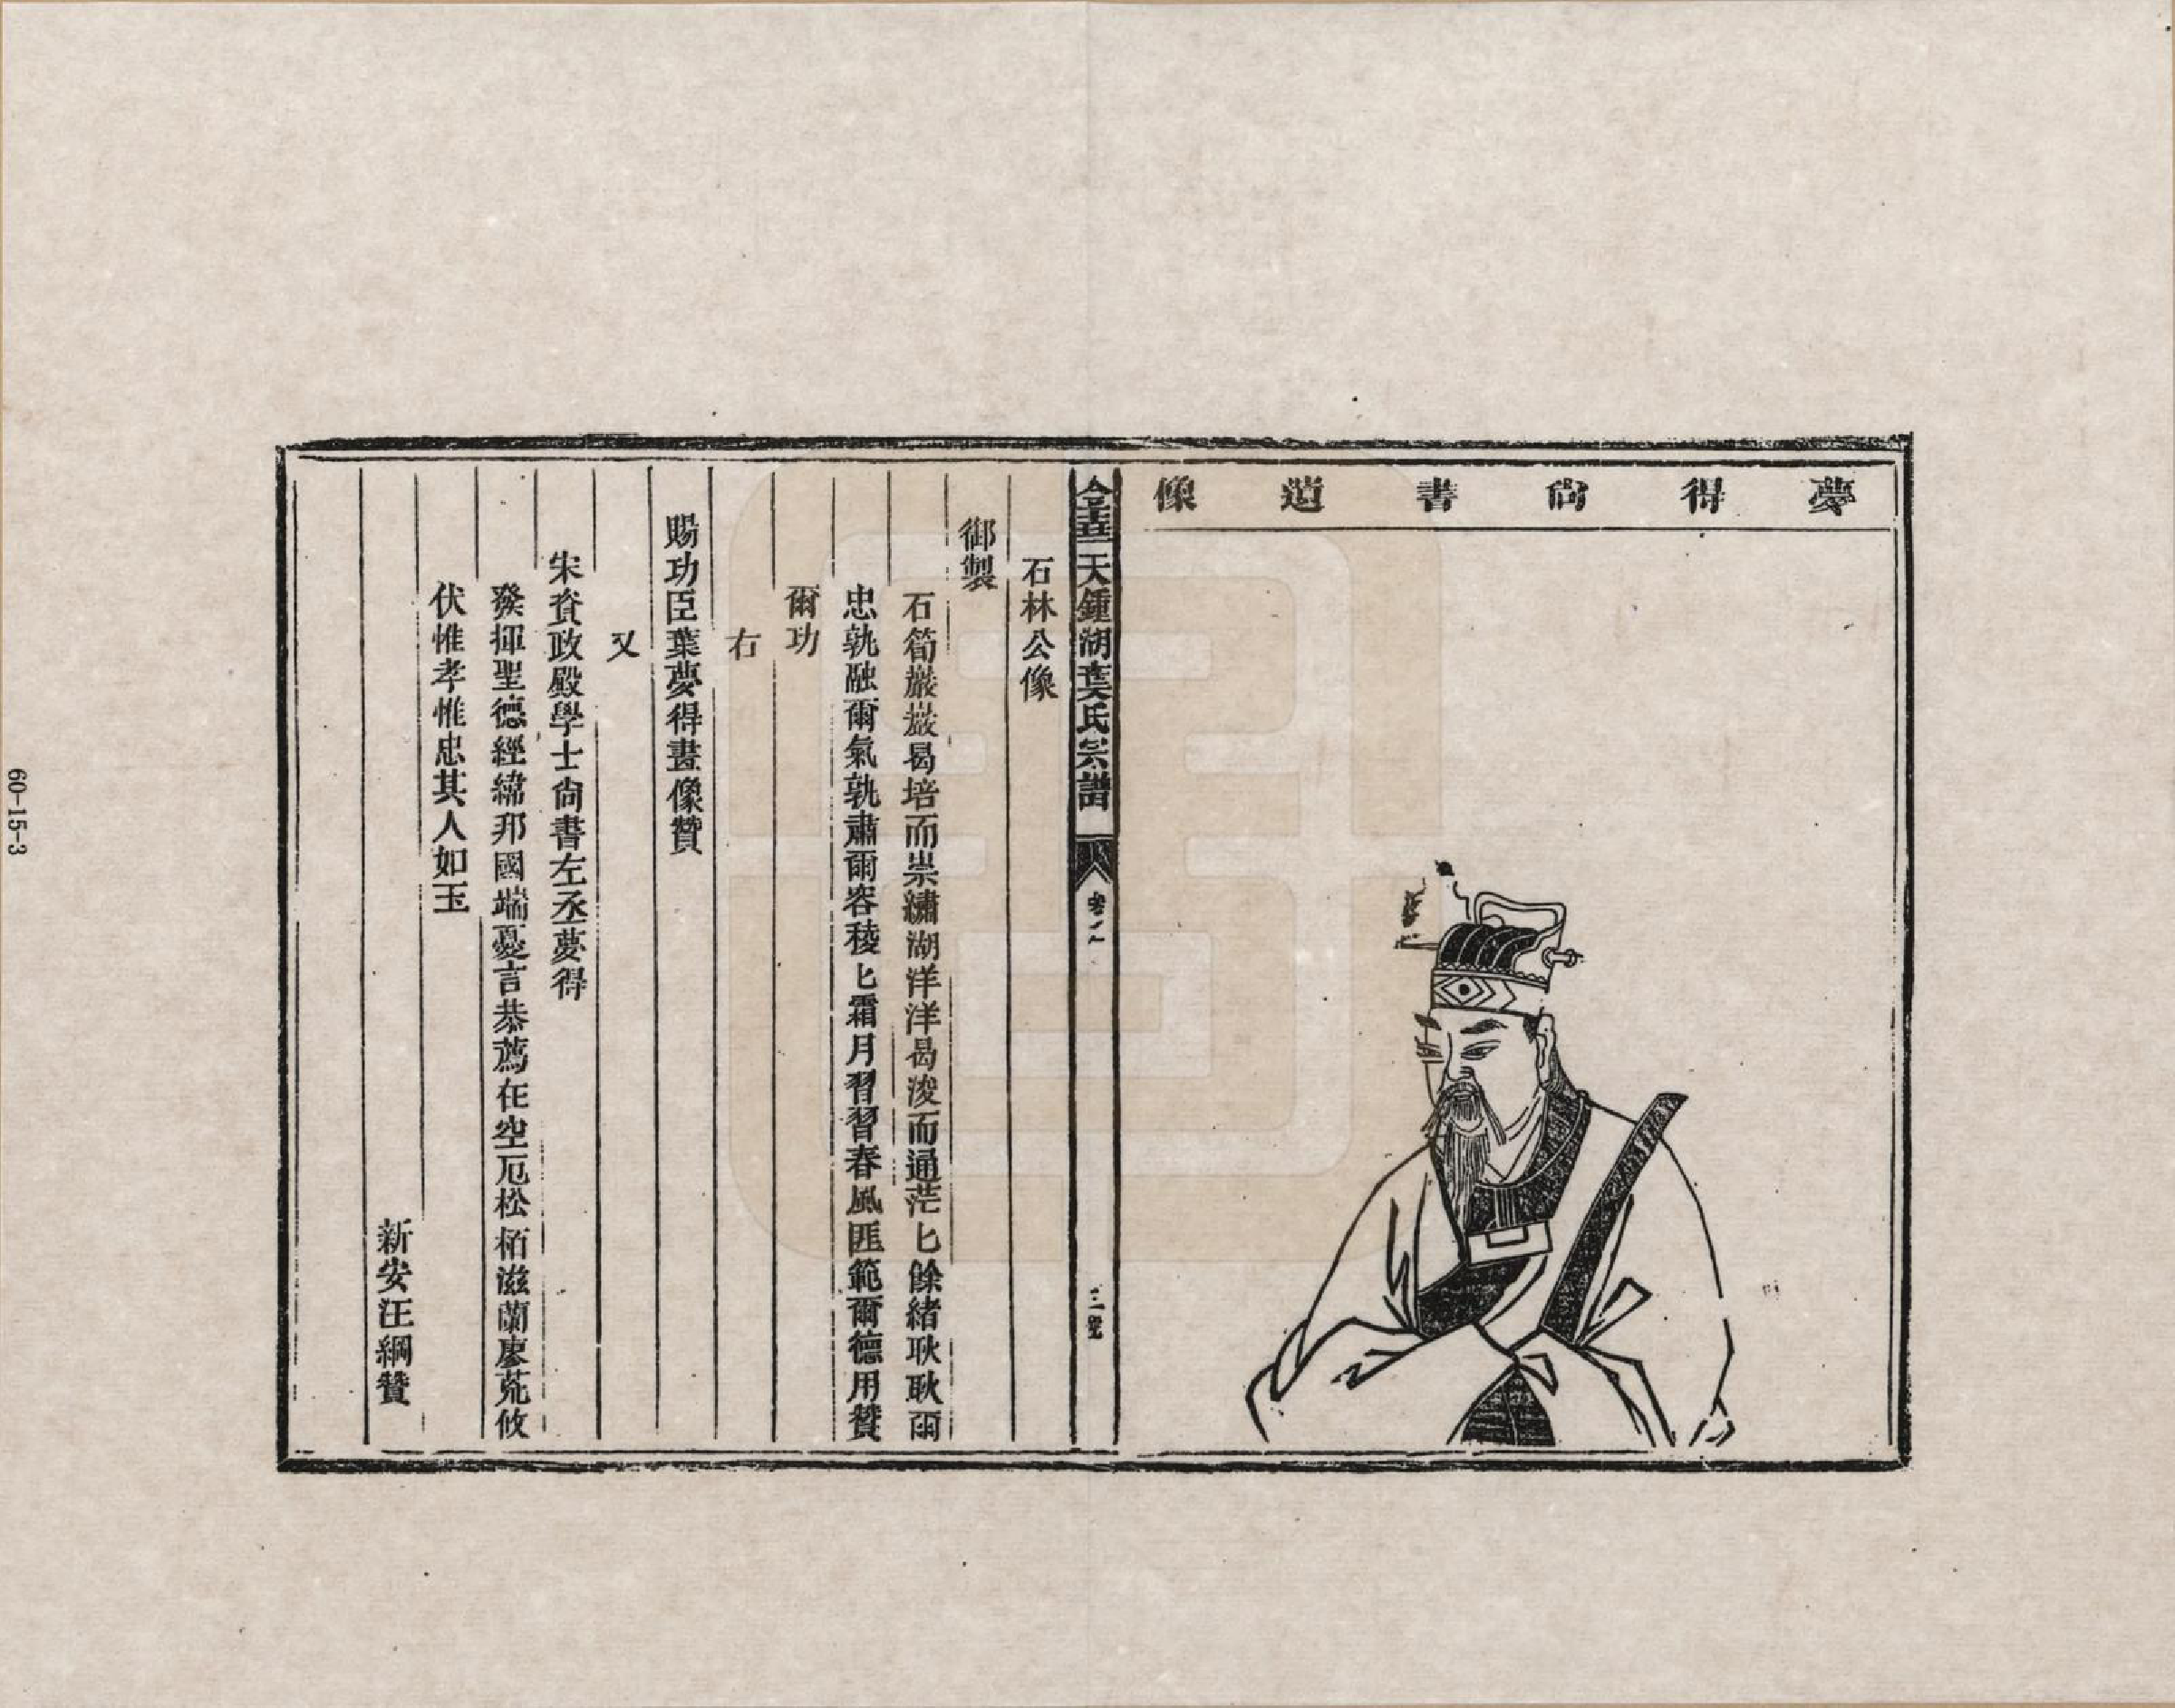 夢得尙書遺像
金華天鍾湖葉氏宗譜
石林公像
御製
石筍巖巖曷培而崇繡湖洋洋曷浚而通茫匕餘緖耿耿爾
忠孰融爾氣孰肅爾容稜匕霜月習習春風匪範爾德用贊
爾功
右
賜功臣葉夢得畫像贊
又
宋資政殿學士尙書左丞夢得
發揮聖德經緯邦國端憂言恭薦在空厄松栢滋蘭廖荒攸
伏惟孝惟忠其人如玉
新安汪綱贊
60-15-3